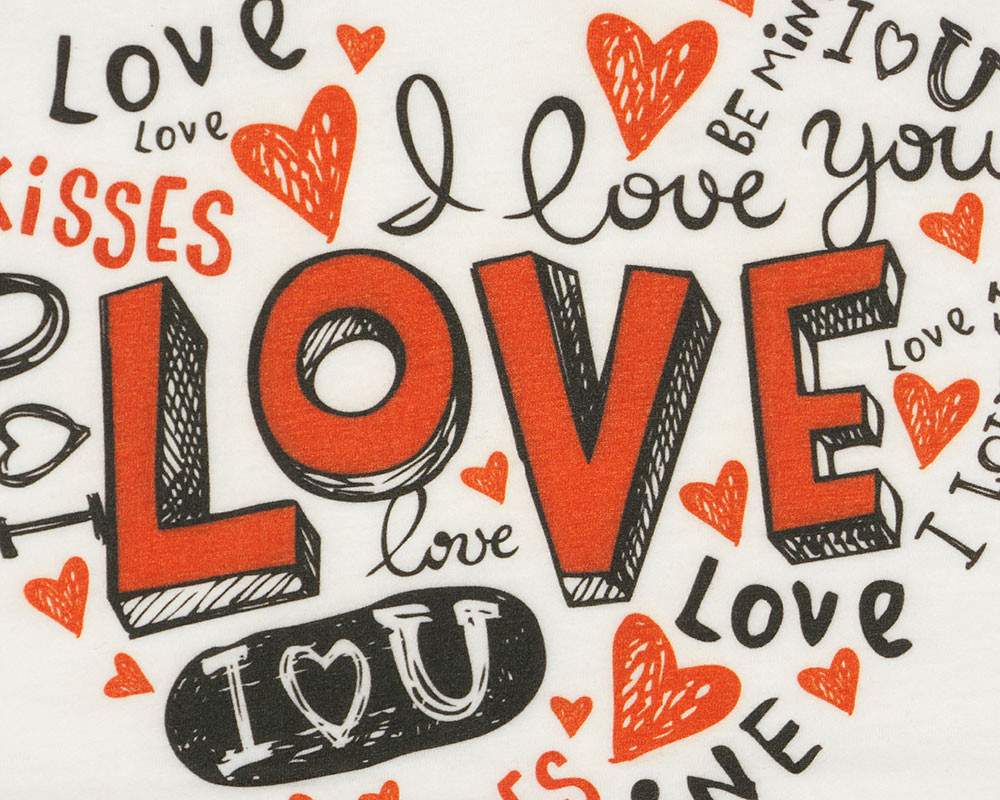 Love
Love
KiSSES
I love you
BE MiN
I ♡ U
LOVE
I ♡ U
Love
I Lov
love
Love
I ♡ U
iNE
ES